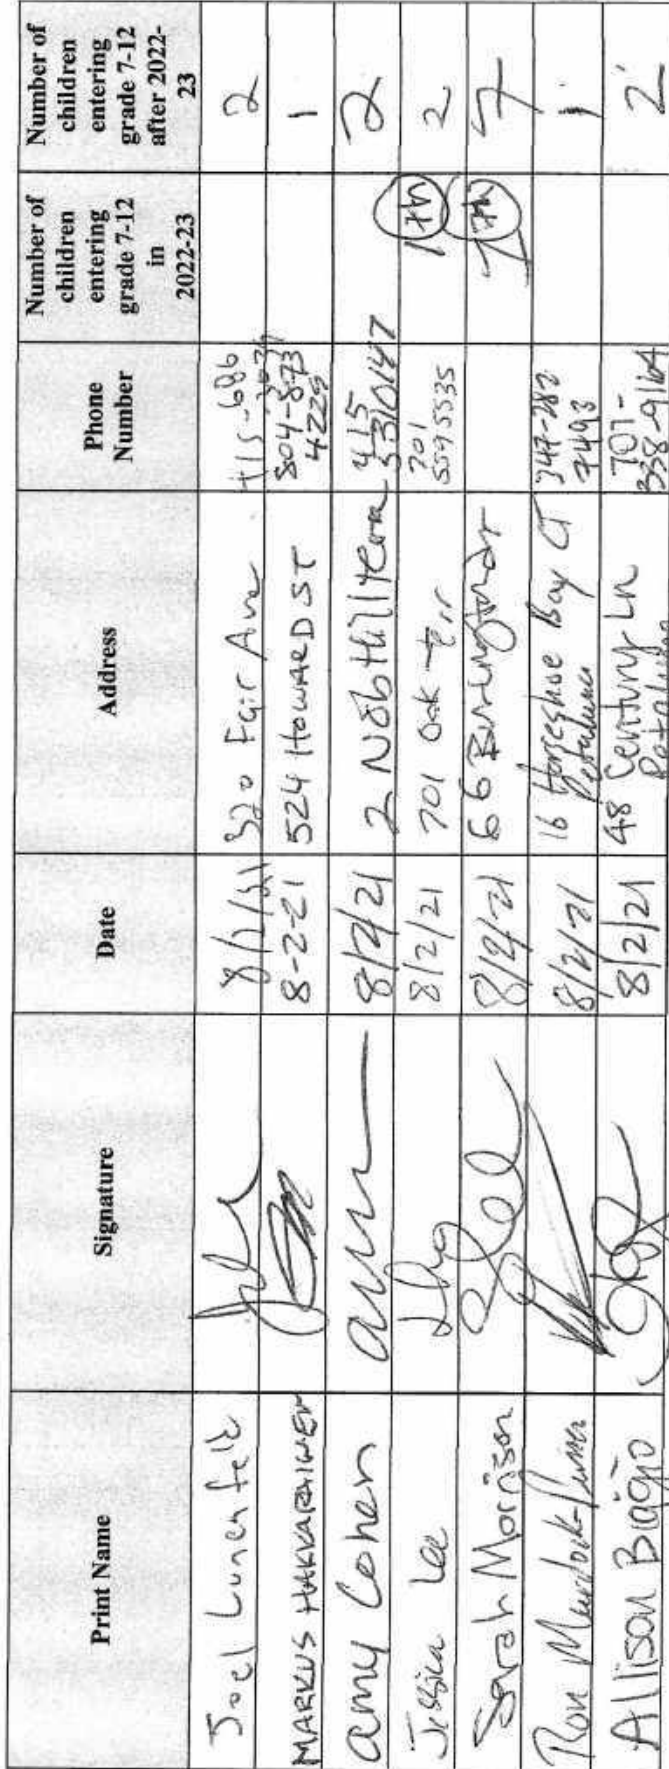 Print Name
Signature
Date
Address
Phone
Number
Number of
children
entering
grade 7-12
in
2022-23
Number of
children
entering
grade 7-12
after 2022-
23
Joel Lunenfeld
8/2/21
320 Fair Ave
415-686
2
MARKUS
8-2-21
524 HOWARD ST
804-873
4229
1
amy Cohen
8/2/21
2 Nob Hill terra
415
3310147
2
Jessica Lee
8/2/21
701 Oak terr
701
5595535
1 7th
2
Sarah Morrison
8/2/21
66
7th
Ron
8/2/21
16 Horseshoe Bay CT
Petaluma
347-282
7493
1
Allison Biaggio
8/2/21
48 Century Ln
Petaluma
707-
338-9164
2